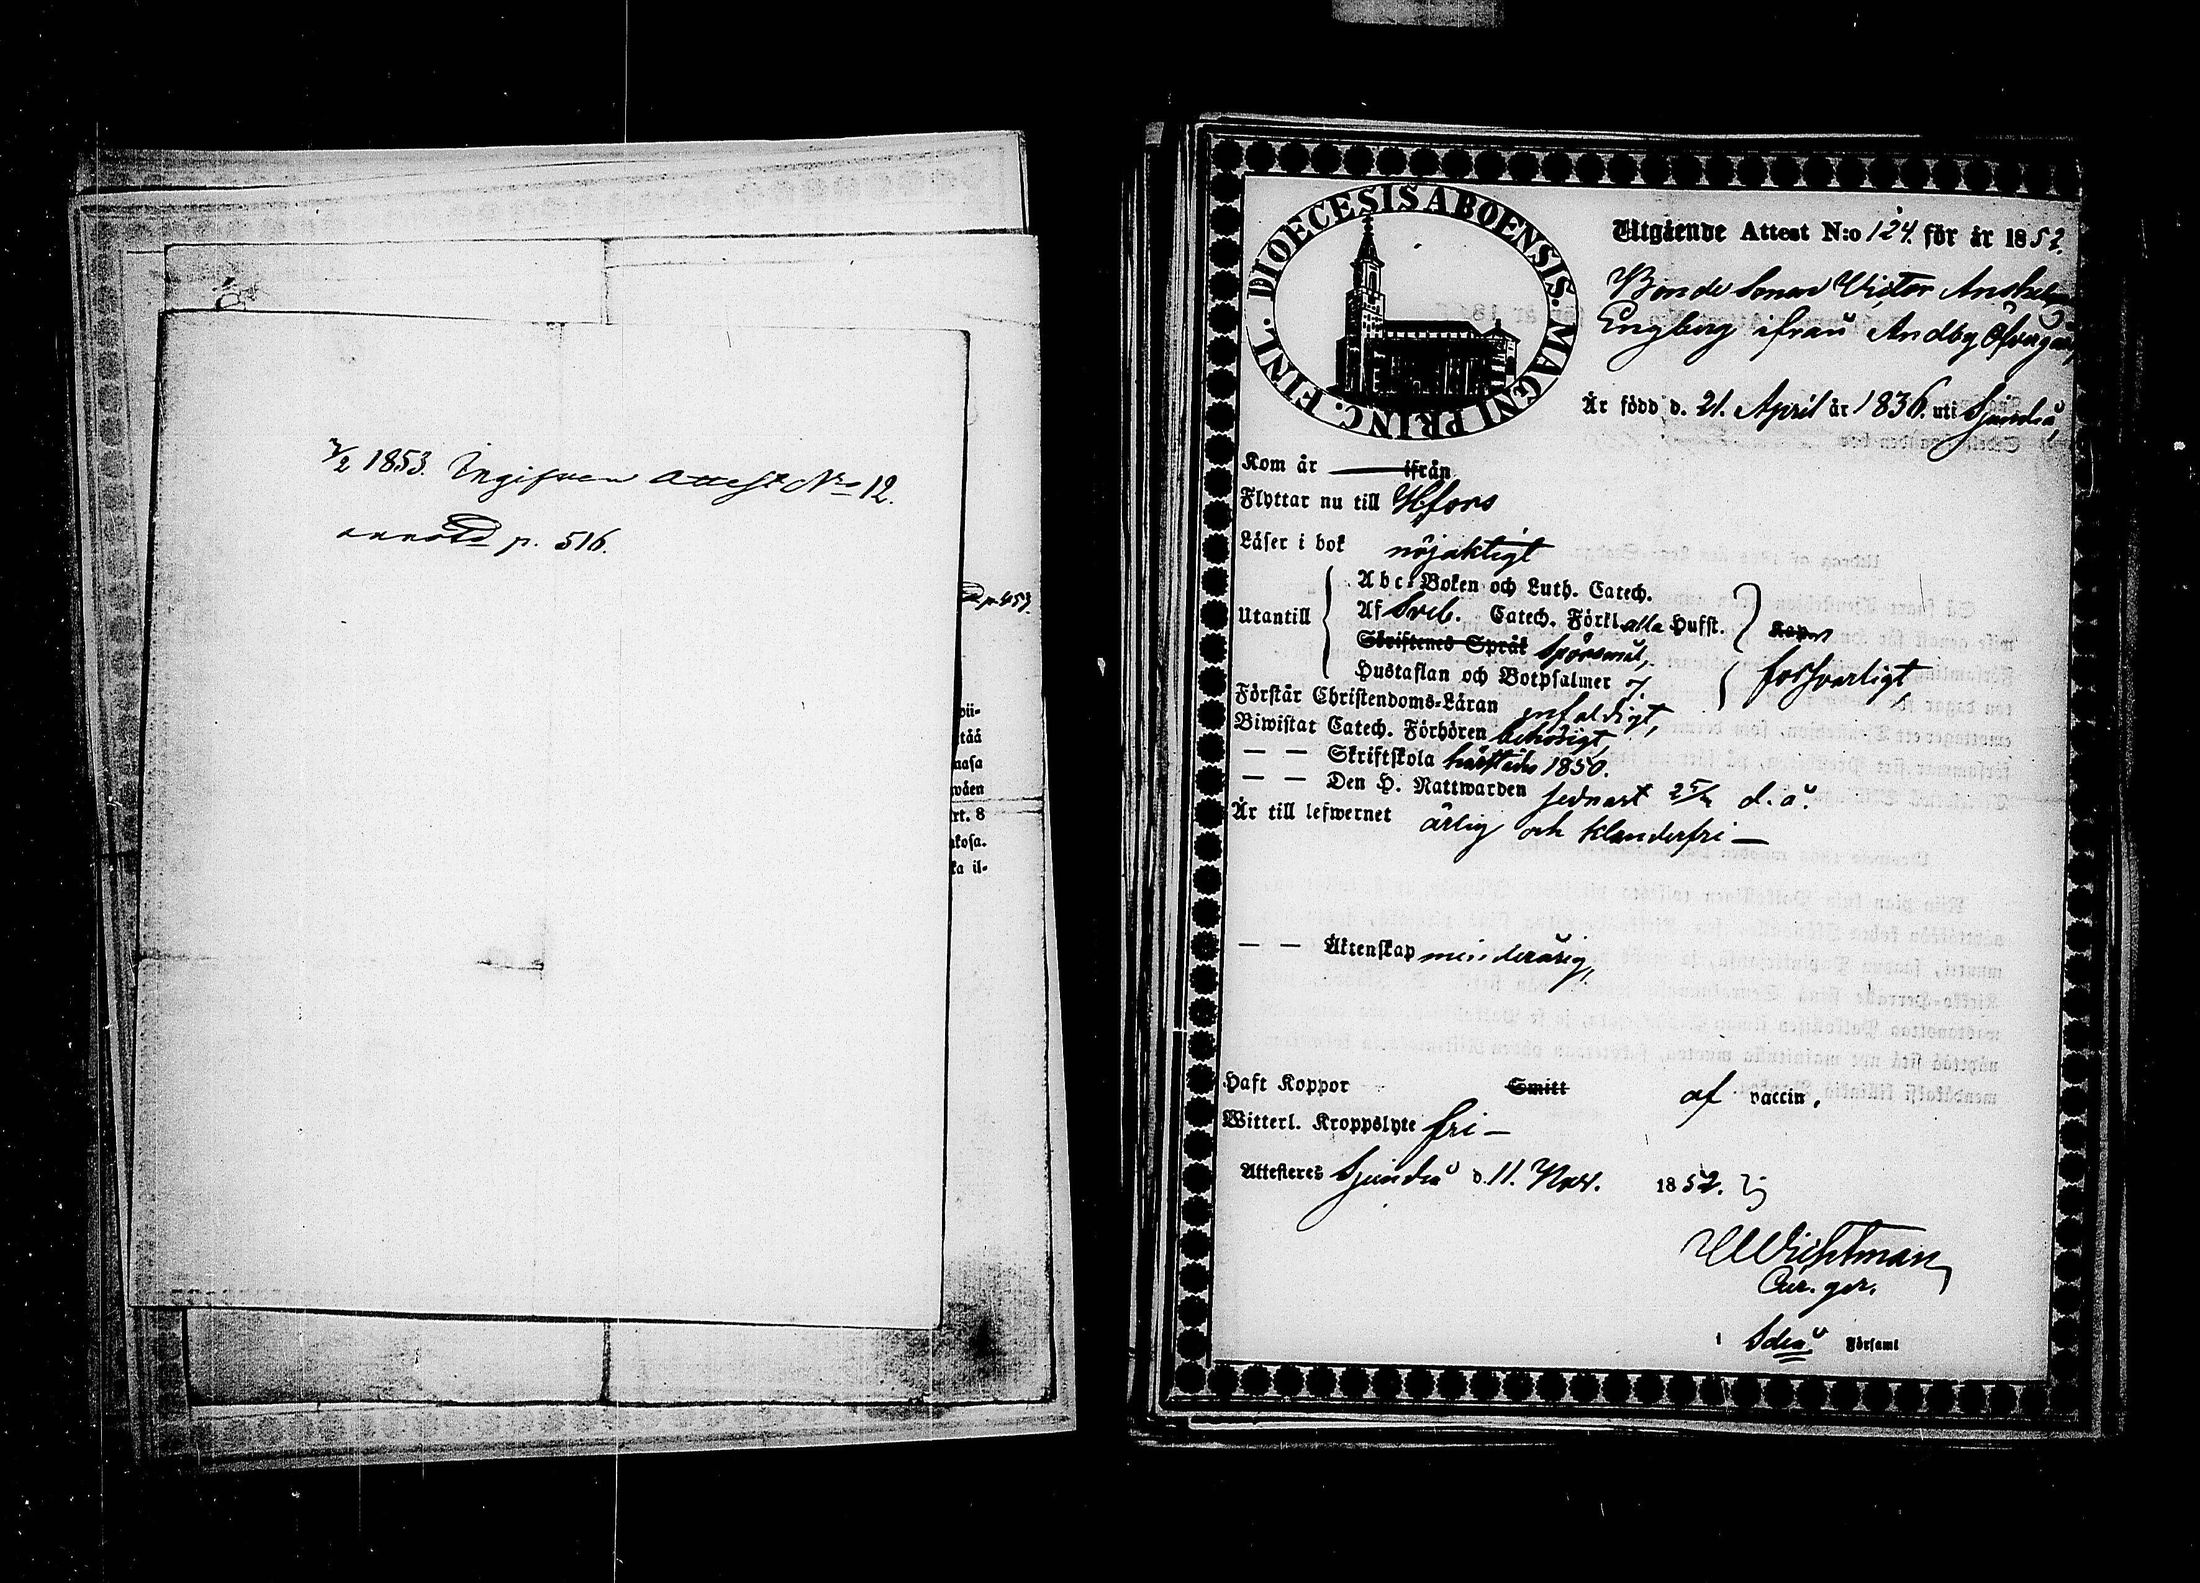 3/2 1853. Ingifven Attest No 12.
annotd p. 516.
p. 453
DIOECESIS ABOENSIS. MAGNI PRINC. FINL.
Utgående Attest N:o 124. för år 1852.
Bonde Sonen Victor Anshelm
Engberg ifrån Andby Öfvergård,
Är född d. 21. April år 1836. uti Sjundeå,
Kom år — ifrån
Flyttar nu till H:fors
Läser i bok nöjaktigt
Utantill
Abc-Boken och Luth. Catech.
Af Sveb. Catech. Förkl. alla Hufst.
Skriftenes Språk Spörsmål,
Hustaflan och Botpsalmer 7.
försvarligt
Förstår Christendoms-Läran enfaldigt,
Biwistat Catech. Förhören behörigt,
— — Skriftskola härstädes 1850.
— — Den H. Nattwarden sednast d. å.
Är till lefwernet ärlig och klanderfri —
— — Äktenskap minderårig,
Haft Koppor Smitt af vaccin,
Witterl. Kroppslyte fri —
Attesteres Sjundeå d. 11. Nov. 1852.
Wichtman
i Sdeå Församl